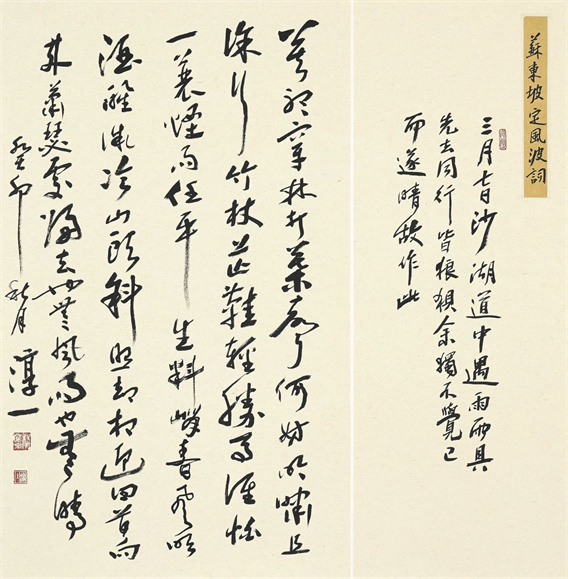 蘇東坡定風波詞
三月七日沙湖道中遇雨雨具
先去同行皆狼狽余獨不覺已
而遂晴故作此
莫聽穿林打葉聲何妨吟嘯且
徐行竹杖芒鞋輕勝馬誰怕
一蓑煙雨任平生料峭春風吹
酒醒微冷山頭斜照却相迎回首向
來蕭瑟處歸去也無風雨也無晴
癸卯秋月淳一